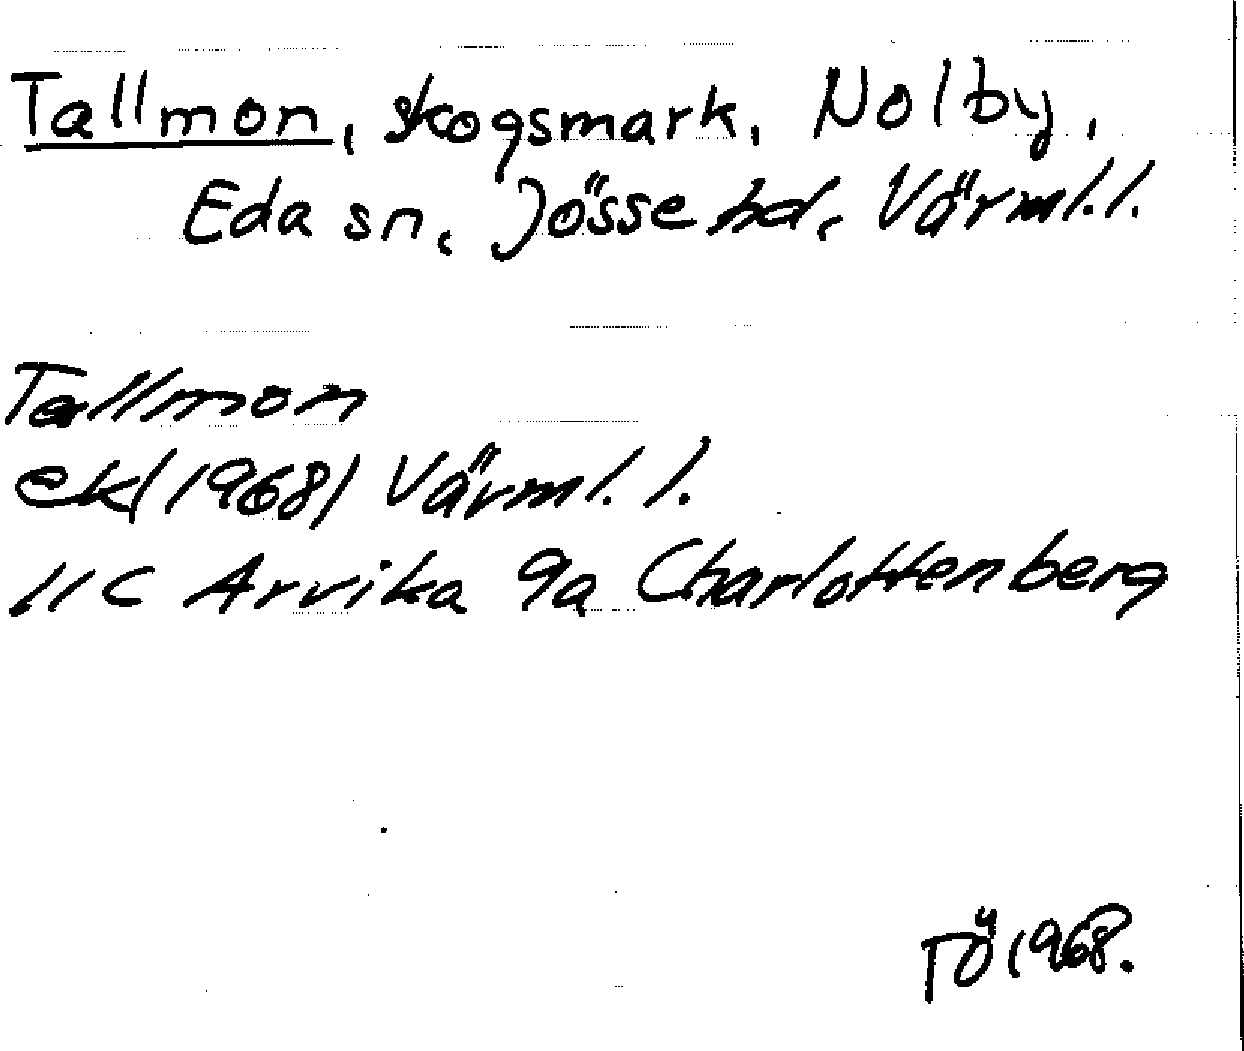 Tallmon, skogsmark, Nolby,
Eda sn, Jösse hd, Värml.l.
Tallmon
ek (1968) Värml. l.
11C Arvika 9a Charlottenberg
TÖ 1968.